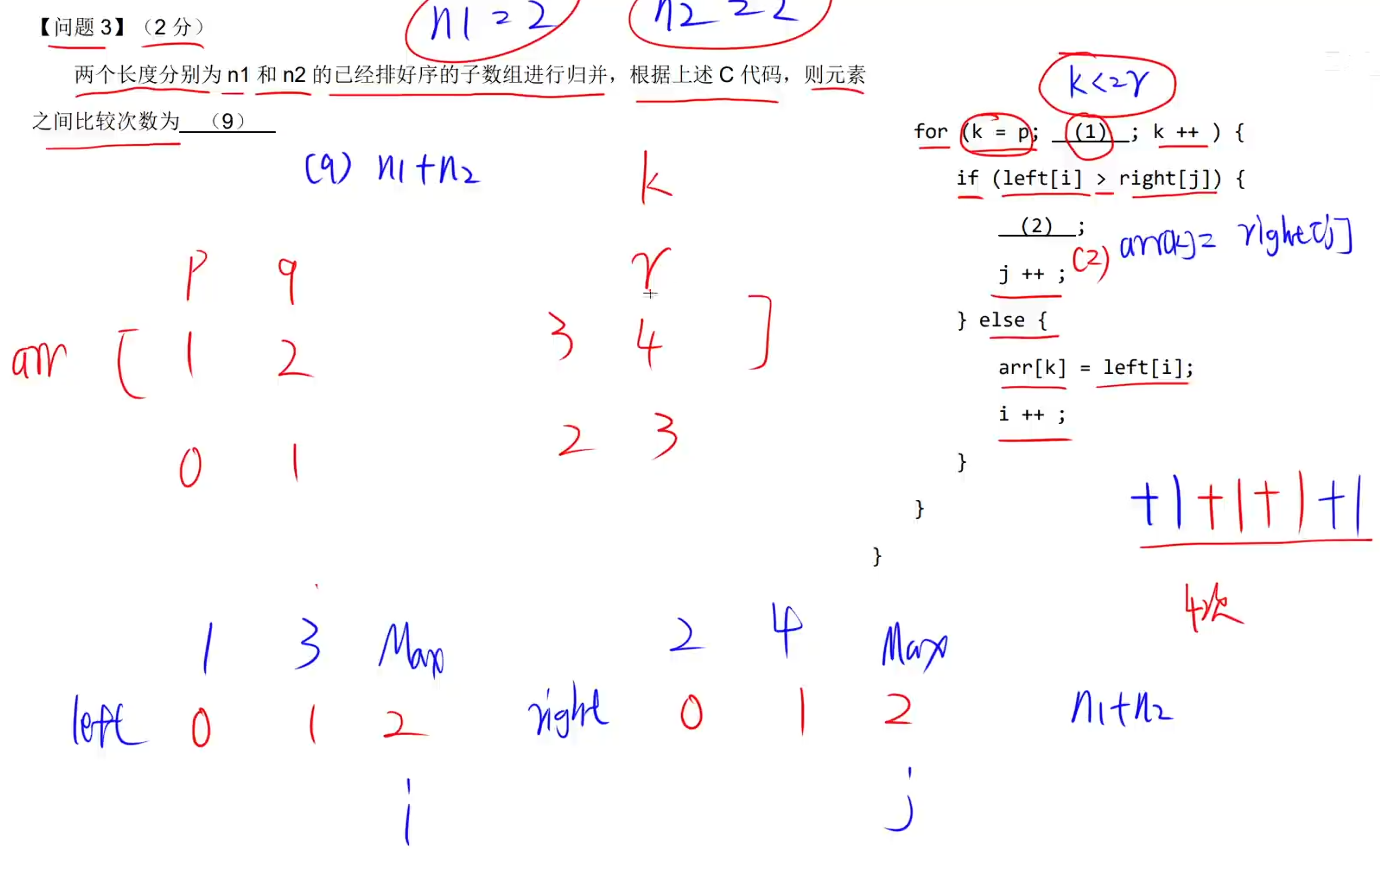 【问题 3】（2 分）
n1 = 2
n2 = 2
两个长度分别为 n1 和 n2 的已经排好序的子数组进行归并，根据上述 C 代码，则元素
之间比较次数为 （9）
(9) n1+n2
k<=r
for (k = p; (1) ; k ++ ) {
if (left[i] > right[j]) {
(2) ;
(2) arr[k]= right[j]
j ++ ;
} else {
arr[k] = left[i];
i ++ ;
}
}
}
k
p q r
arr [ 1 2 3 4 ]
0 1 2 3
+1+1+1+1
4次
1 3 Max 2 4 Max
left 0 1 2 right 0 1 2 n1+n2
i j